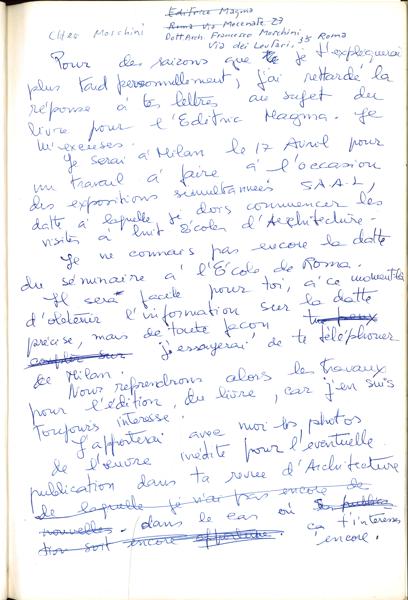 Editrice Magma
Roma Via Mecenate 27
Cher Moschini Dott Arch. Francesco Moschini
Via dei Leutari, 35 Roma
Pour des raisons que je t'expliquerai
plus tard personnellement, j'ai retardé la
réponse à tes lettres au sujet du
livre pour l'Editrice Magma. Je
m'excuses.
Je serai à Milan le 17 Avril pour
un travail à faire à l'occasion
des expositions simultannées SAAL,
datte à laquelle je dois commencer les
visites à huit Ecoles d'Architecture.
Je ne connais pas encore la datte
du séminaire à l'École de Roma.
Il sera facile pour toi, à ce moment là
d'obtenir l'information sur la datte
précise, mais de toute façon tu peux
compter sur j'essayerai de te téléphoner
de Milan.
Nous reprendrons alors les travaux
pour l'édition, du livre, car j'en suis
toujours interessé.
J'apporterai avec moi les photos
de l'œuvre inédite pour l'eventuelle
publication dans ta revue d'Architecture
de laquelle je n'ai pas encore de
nouvelles. dans le cas où la publica-
tion soit encore opportune. ça t'interesse
encore.